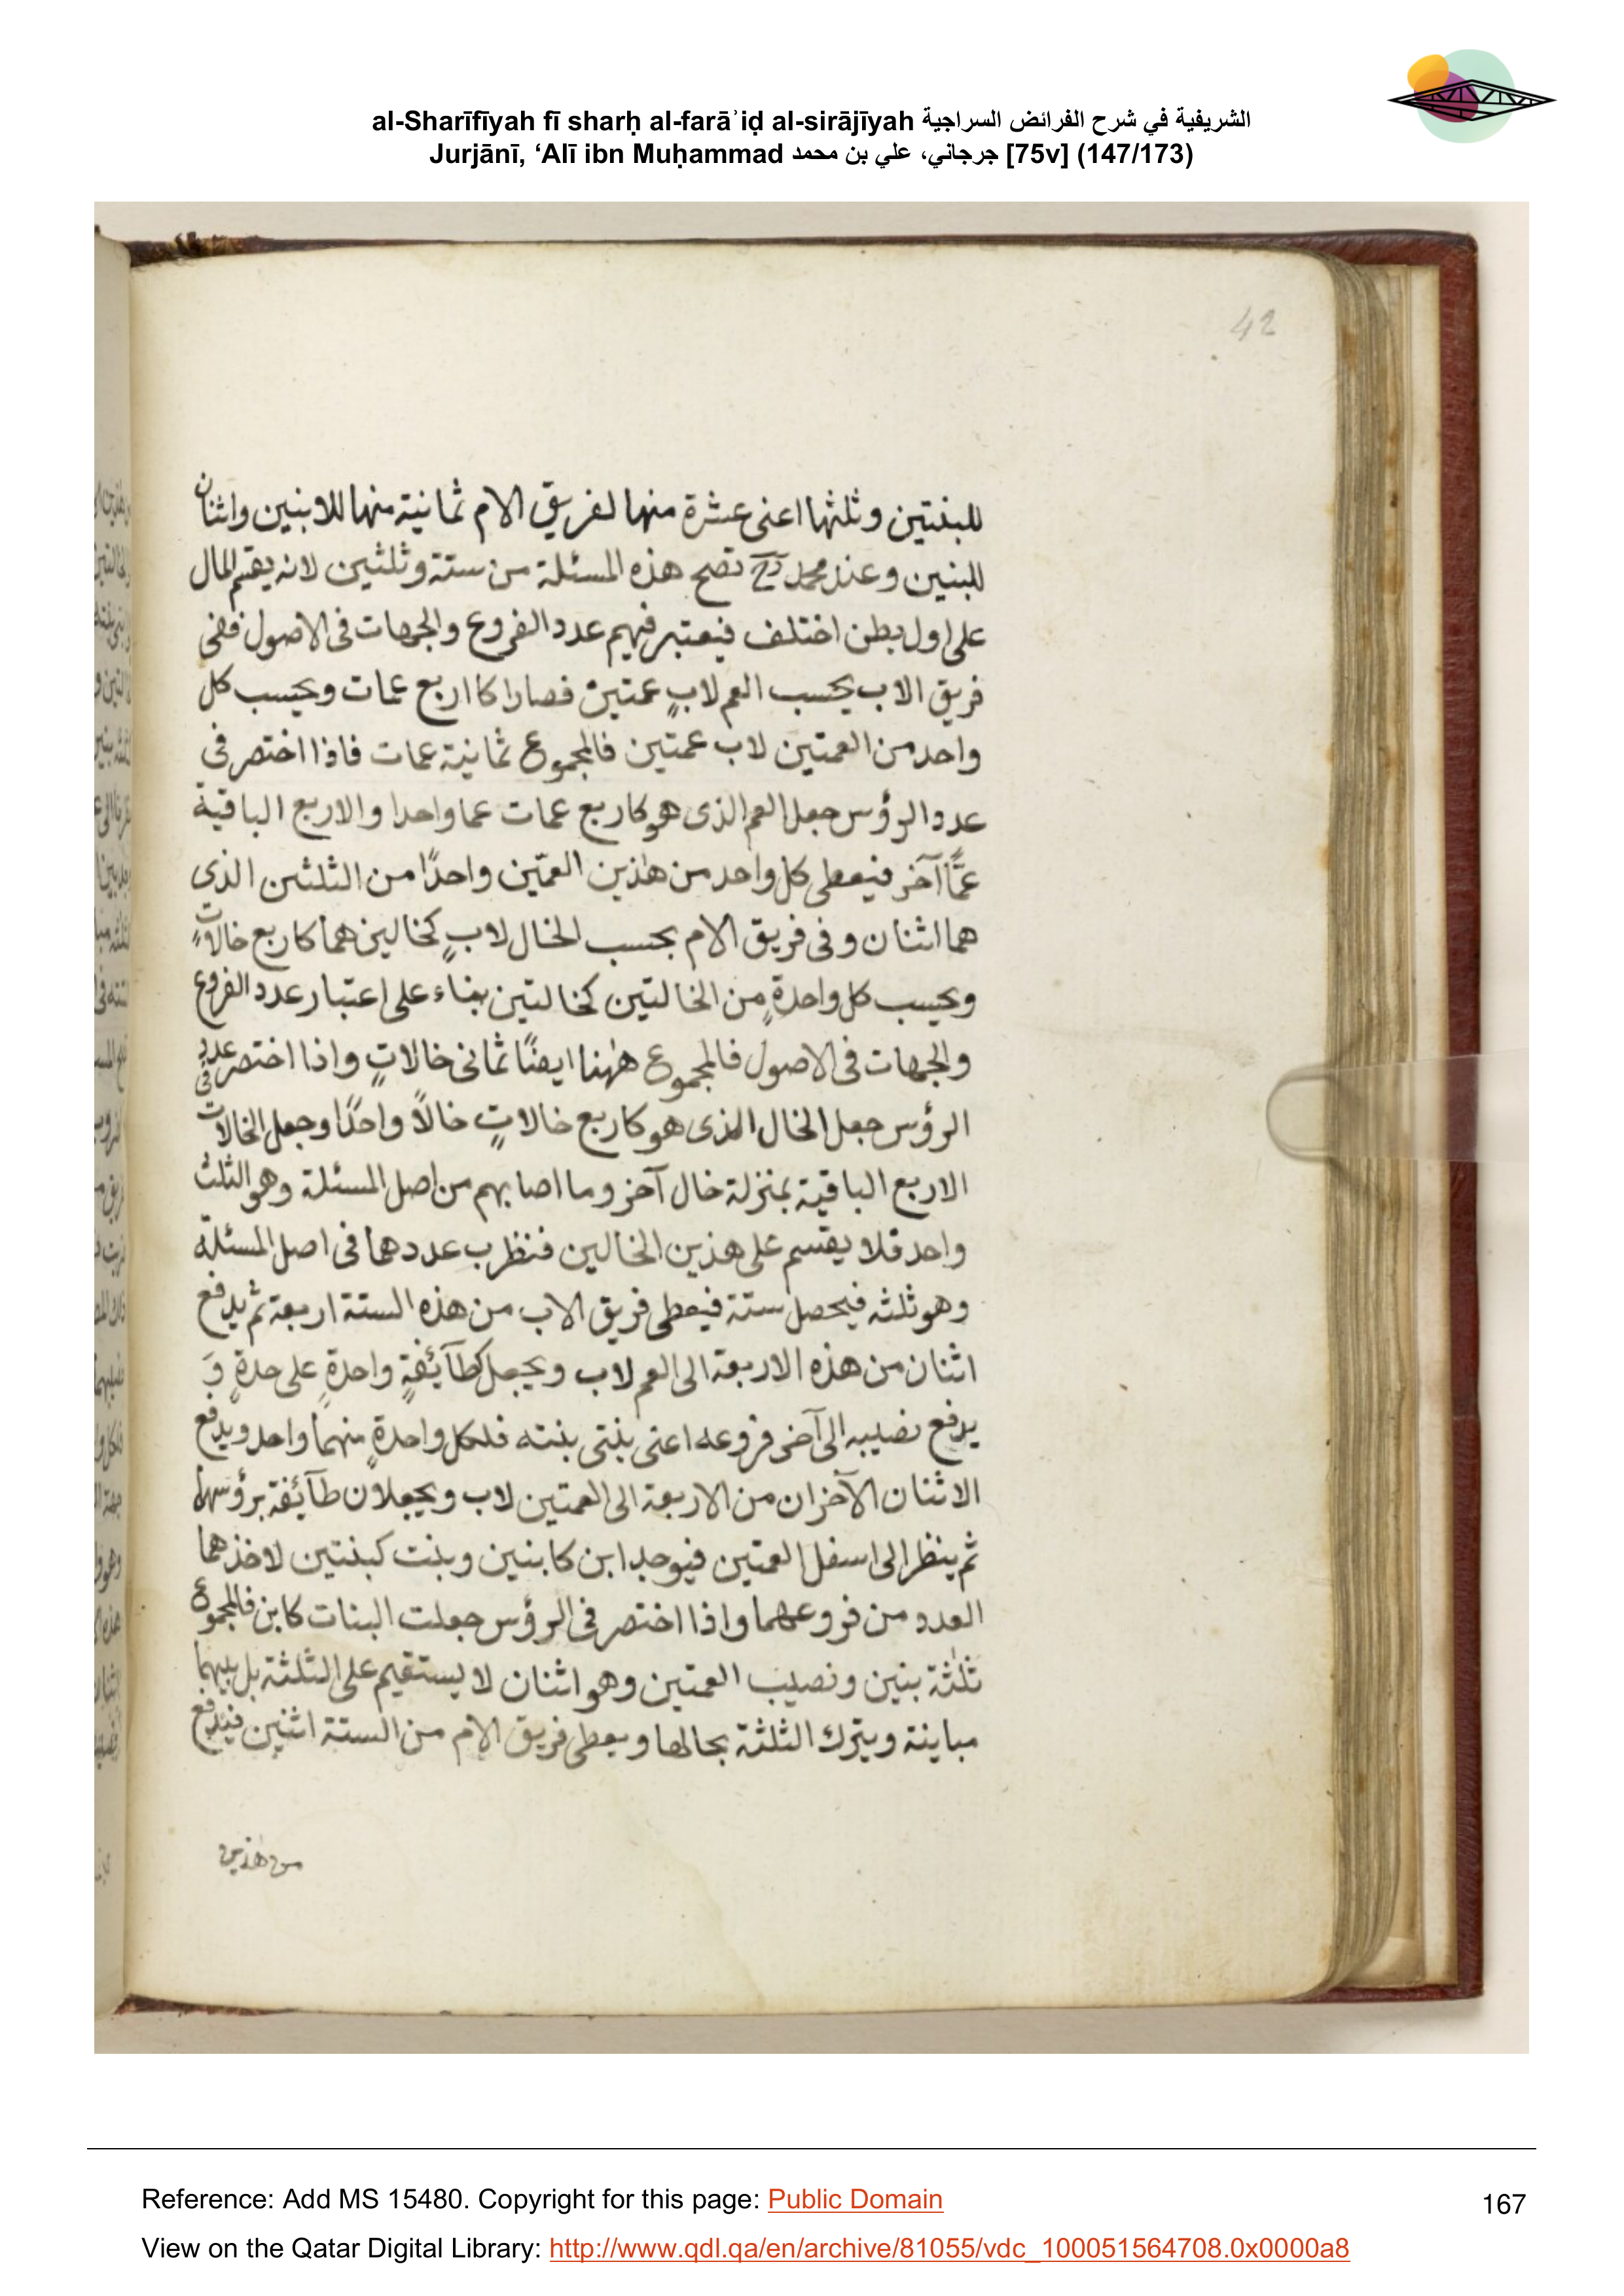 al-Sharīfīyah fī sharḥ al-farāʾiḍ al-sirājīyah الشريفية في شرح الفرائض السراجية
Jurjānī, ‘Alī ibn Muḥammad جرجاني، علي بن محمد [75v] (147/173)
42
للبنتين وثلثها اعنى عشرة منها لفريق الام ثمانية منها للابنين واثنان
للبنين وعند محمد رح تصح هذه المسئلة من ستة وثلثين لانه يقسم المال
على اول بطن اختلف فيعتبر فيهم عدد الفروع والجهات فى الاصول ففى
فريق الاب يحسب العم لابٍ عمتين فصارا كاربع عمات ويحسب كل
واحد من العمتين لاب عمتين فالمجموع ثمانية عمات فاذا اختصر فى
عدد الرؤس جعل العم الذى هو كاربع عمات عما واحدا والاربع الباقية
عمًّا آخر فيعطى كل واحد من هٰذين العمّين واحدًا من الثلثين الذى
هما اثنان وفى فريق الام بحسب الخال لابٍ كخالين هما كاربع خالاتٍ
ويحسب كل واحدةٍ من الخالتين كخالتين بناء على اعتبار عدد الفروع
والجهات فى الاصول فالمجموع هٰهنا ايضًا ثمانى خالاتٍ واذا اختصر فى عدد
الرؤس جعل الخال الذى هو كاربع خالاتٍ خالاً واحدًا وجعل الخالات
الاربع الباقية بمنزلة خال آخر وما اصابهم من اصل المسئلة وهو الثلث
واحد فلا يقسم على هذين الخالين فنظرب عددهما فى اصل المسئلة
وهو ثلثه فيحصل ستة فيعطى فريق الاب من هذه الستة اربعة ثم يدفع
اثنان من هذه الاربعة الى العم لاب ويجعل كطآئفةٍ واحدةٍ على حدةٍ وَ
يدفع نصيبه الى آخر فروعه اعنى بنتى بنته فلكل واحدةٍ منهما واحد ويدفع
الاثنان الآخران من الاربعة الى العمتين لاب ويجعلان طآئفة برؤسهما
ثم ينظر الى اسفل العمتين فيوجد ابن كابنين وبنت كبنتين لاخذهما
العدد من فروعهما واذا اختصر فى الرؤس جعلت البنات كابن فالمجموع
ثلٰثة بنين ونصيب العمتين وهو اثنان لا يستقيم على الثلثة بل بينهما
مباينة ويترك الثلثة بحالها ويعطى فريق الام من الستة اثنين فيدفع
من هٰذين
Reference: Add MS 15480. Copyright for this page: Public Domain
167
View on the Qatar Digital Library: http://www.qdl.qa/en/archive/81055/vdc_100051564708.0x0000a8